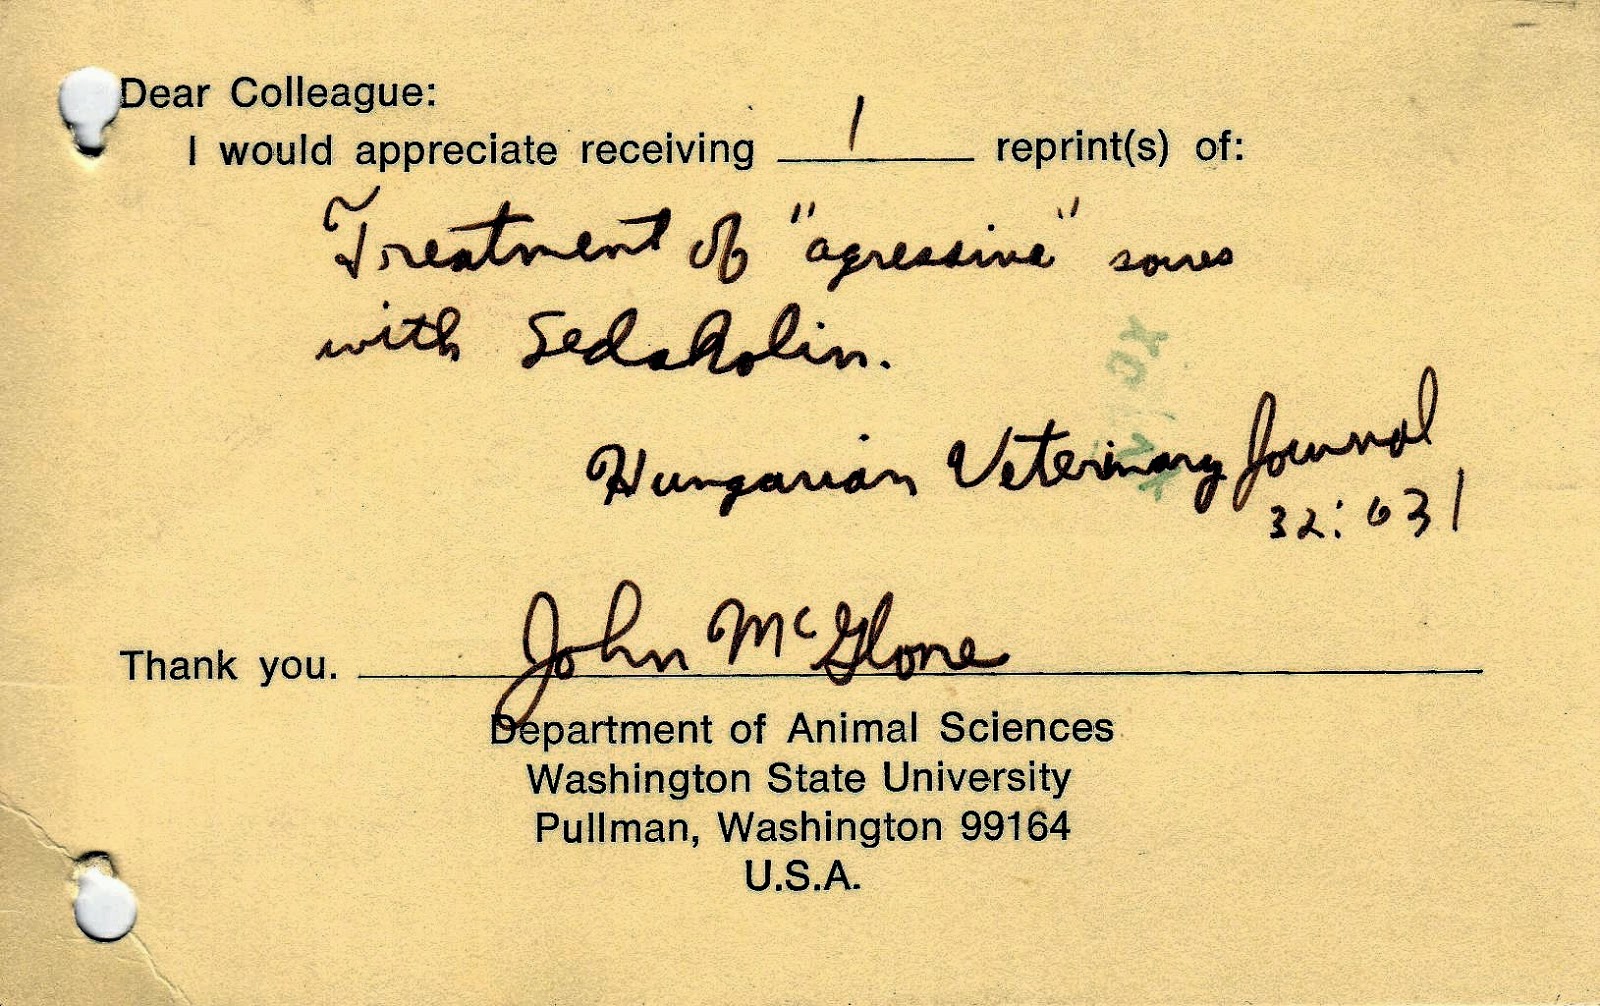 Dear Colleague:
I would appreciate receiving 1 reprint(s) of:
Treatment of "agressive" sows
with Sedakolin.
Hungarian Veterinary Journal
32: 631
Thank you. John McGlone
Department of Animal Sciences
Washington State University
Pullman, Washington 99164
U.S.A.